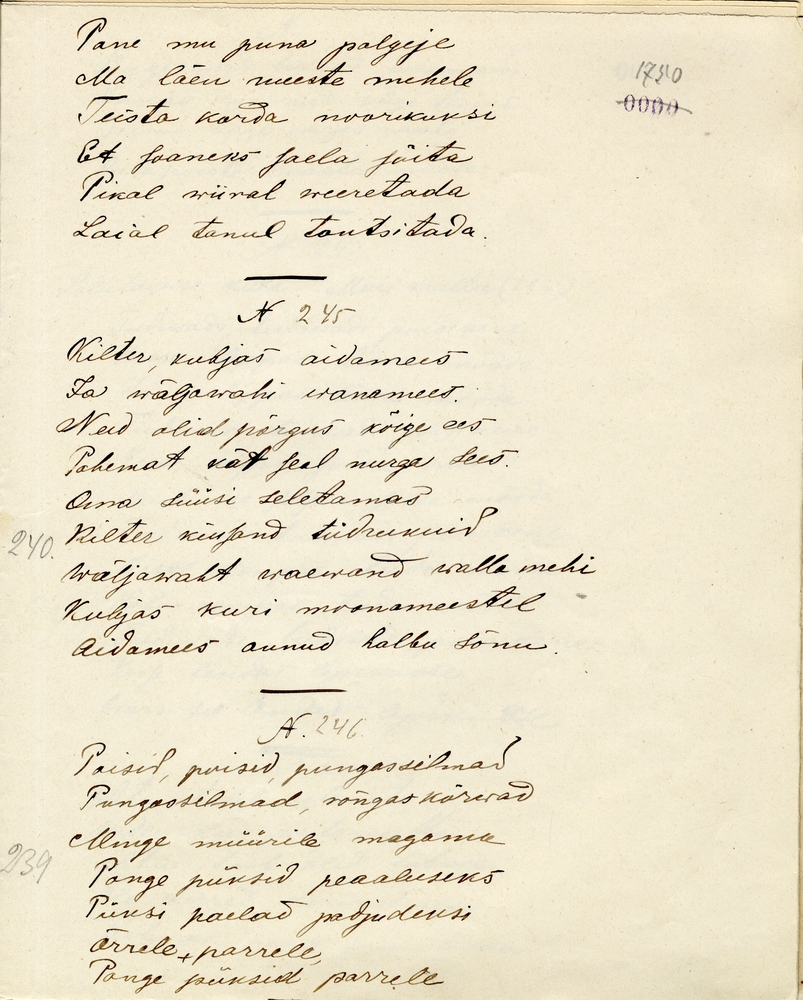 Pane mu puna palgeje
1750
Ma läen meeste mehele
0000
Teista korda noorikuksi
Et saaneks saela sõita
Pikal wiiral weeretada
Laial tanul tantsitada.
N 245
Kilter, kubjas aidamees
Ja wäljawahi wanamees.
Need olid põrgus kõige ees
Pahemat kät seal nurga sees.
Oma süüsi seletamas
240.
Kilter kiusand tüdrukuid
Wäljawaht waewand walla mehi
Kubjas kuri moonameestel
Aidamees annud halbu sõnu.
N. 246.
Poisid, poisid, pungassilmad
Pungassilmad, rõngaskõrwad
Minge müürile magama
239
Pange püksid peaaluseks
Püksi paelad padjudeksi
Õrrele + parrele,
Pange püksid parrele